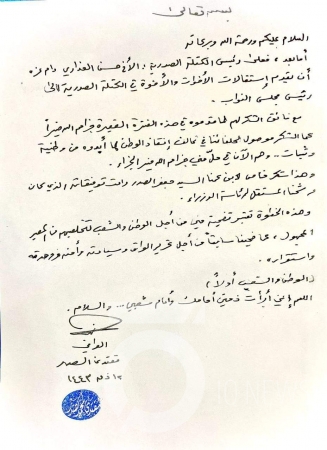 بسمه تعالى
السلام عليكم ورحمة الله وبركاته
أما بعد، فعلى رئيس الكتلة الصدرية: الأخ حسن العذاري دام عزه
أن يقدم إستقالات الأخوات والأخوة في الكتلة الصدرية الى
رئيس مجلس النواب.
مع فائق الشكر لهم لما قدموه في هذه الفترة القصيرة جزاهم الله خيراً
كما الشكر موصول لحلفائنا في تحالف إنقاذ الوطن لما أبدوه من وطنية
وثبات.. وهم الآن في حلّ مني جزاهم الله خير الجزاء.
وهنا شكر خاص لابن عمنا السيد جعفر الصدر دامت توفيقاته الذي كان
مرشحنا المستقل لرئاسة الوزراء.
وهذه الخطوة تعتبر تضحية مني من أجل الوطن والشعب لتخليصهم من المصير
المجهول، كما ضحينا سابقاً من أجل تحرير العراق وسيادته وأمنه ووحدته
واستقراره.
(الوطن والشعب أولاً)
اللهم إني أبرأت ذمتي أمامك وأمام شعبي... والسلام.
الراجي
مقتدى الصدر
ذو القعدة ١٤٤٣